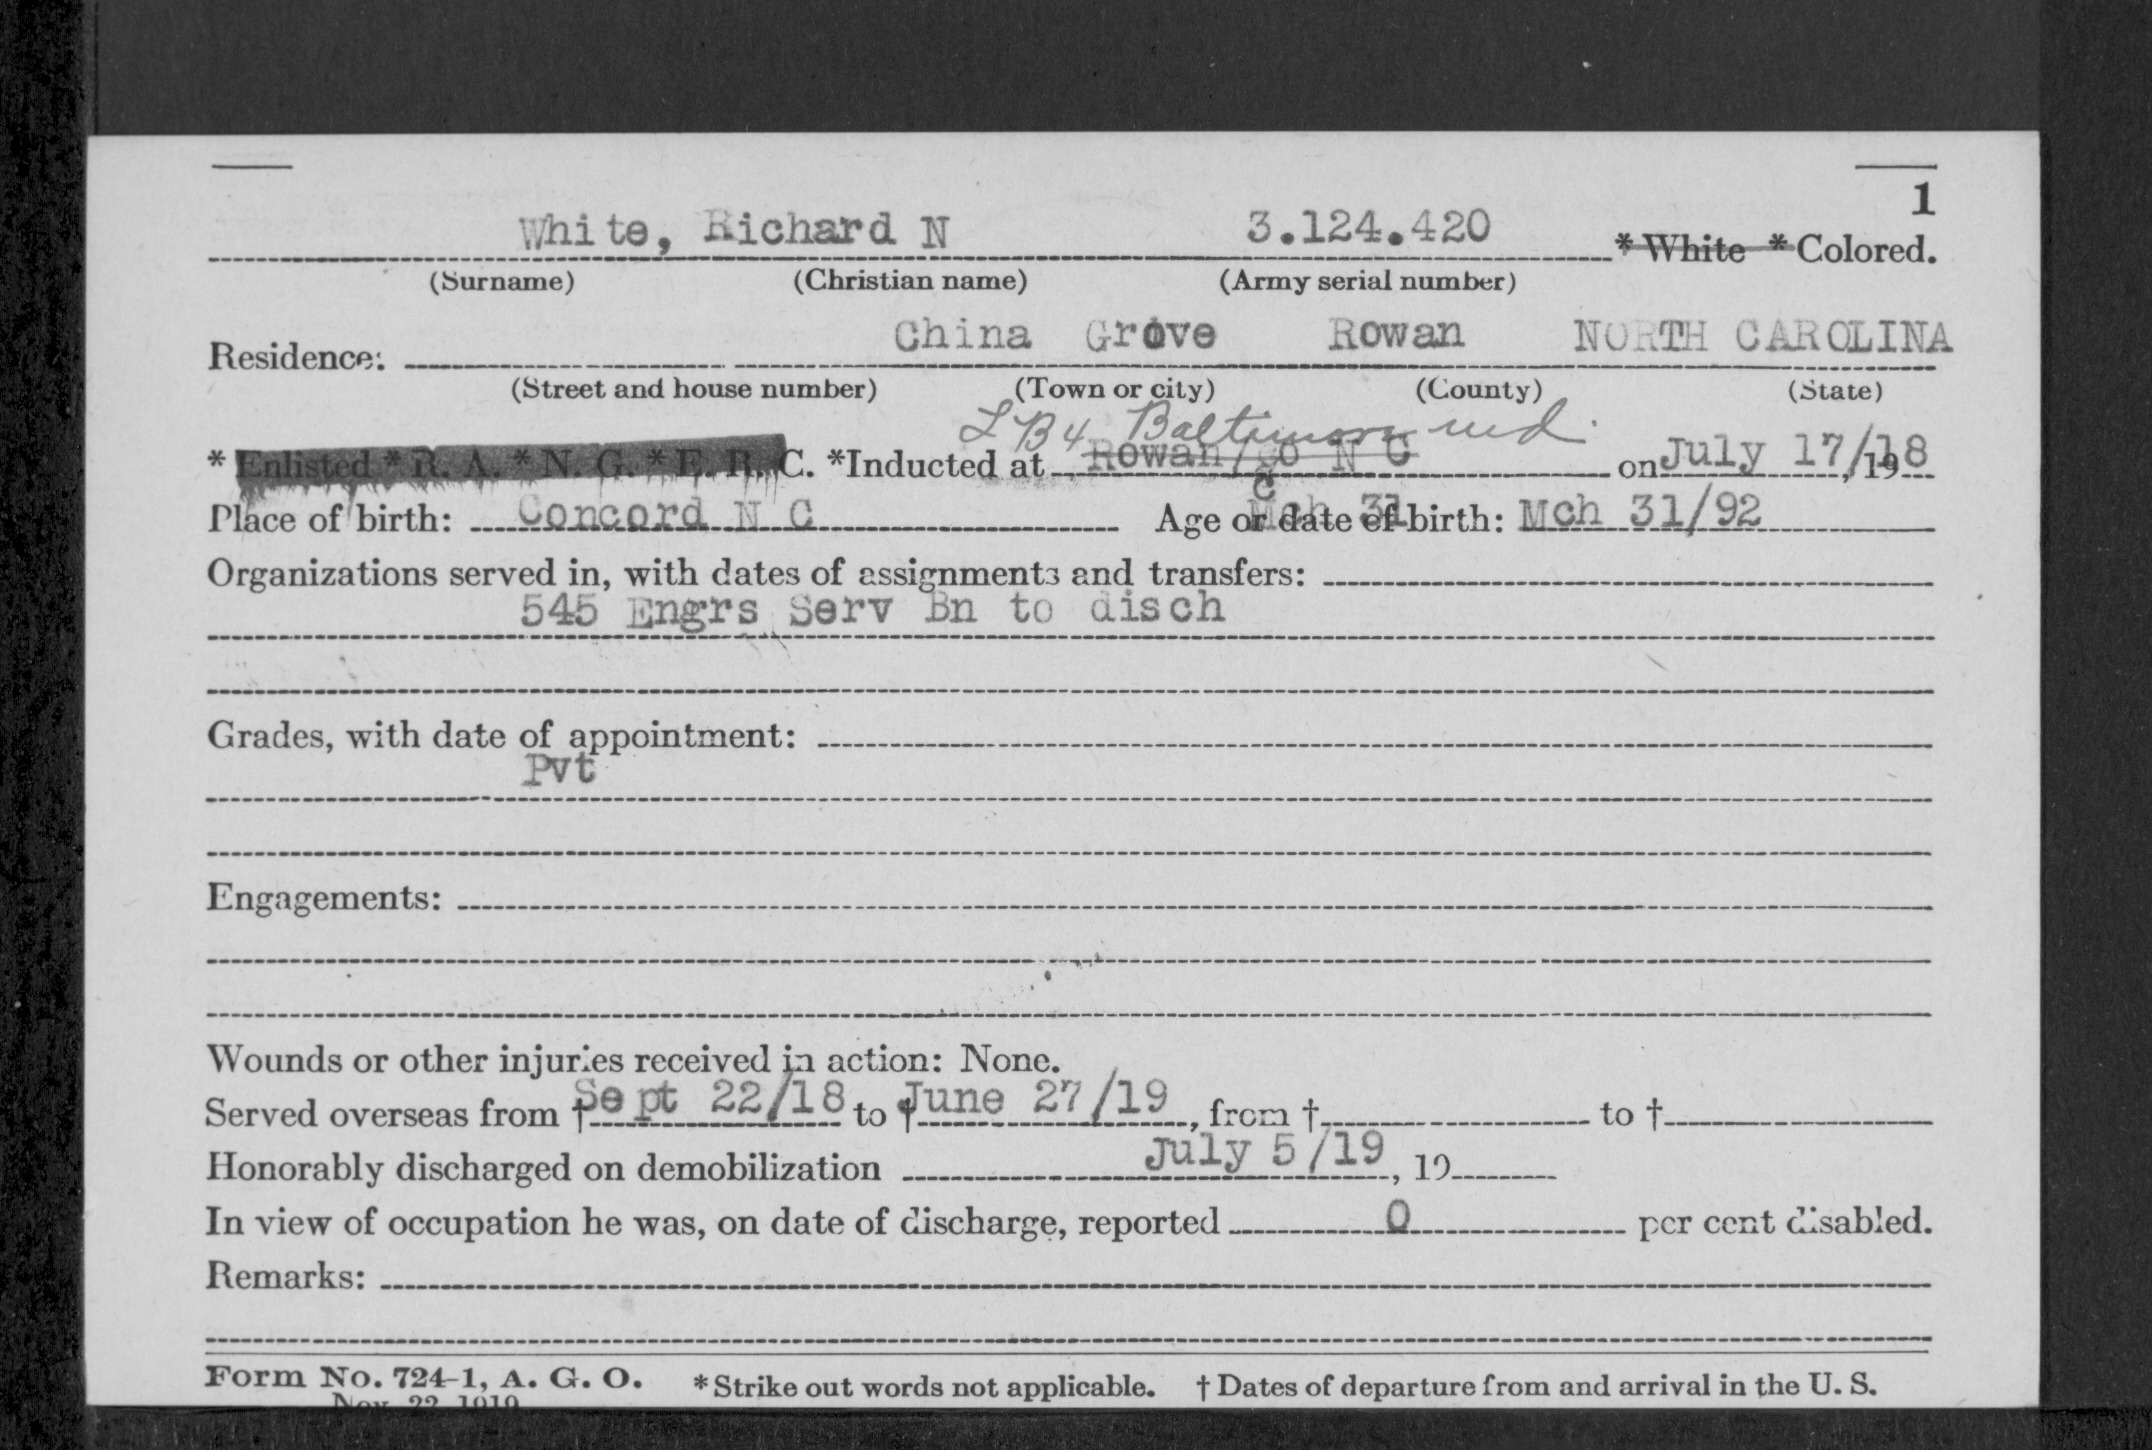 1
White, Richard N 3.124.420 * White * Colored.
(Surname) (Christian name) (Army serial number)
Residence: China Grove Rowan NORTH CAROLINA
(Street and house number) (Town or city) (County) (State)
L B 4 Baltimore Md.
* Enlisted * R. A. * N. G. * E. R. C. *Inducted at Rowan/Co N C on July 17/18, 19
Place of birth: Concord N C Age or date of birth: Mch 31/92
Organizations served in, with dates of assignments and transfers:
545 Engrs Serv Bn to disch
Grades, with date of appointment:
Pvt
Engagements:
Wounds or other injuries received in action: None.
Served overseas from † Sept 22/18 to † June 27/19, from † to †
Honorably discharged on demobilization July 5/19, 19
In view of occupation he was, on date of discharge, reported 0 per cent disabled.
Remarks:
Form No. 724-1, A. G. O. * Strike out words not applicable. † Dates of departure from and arrival in the U. S.
Nov. 22, 1919